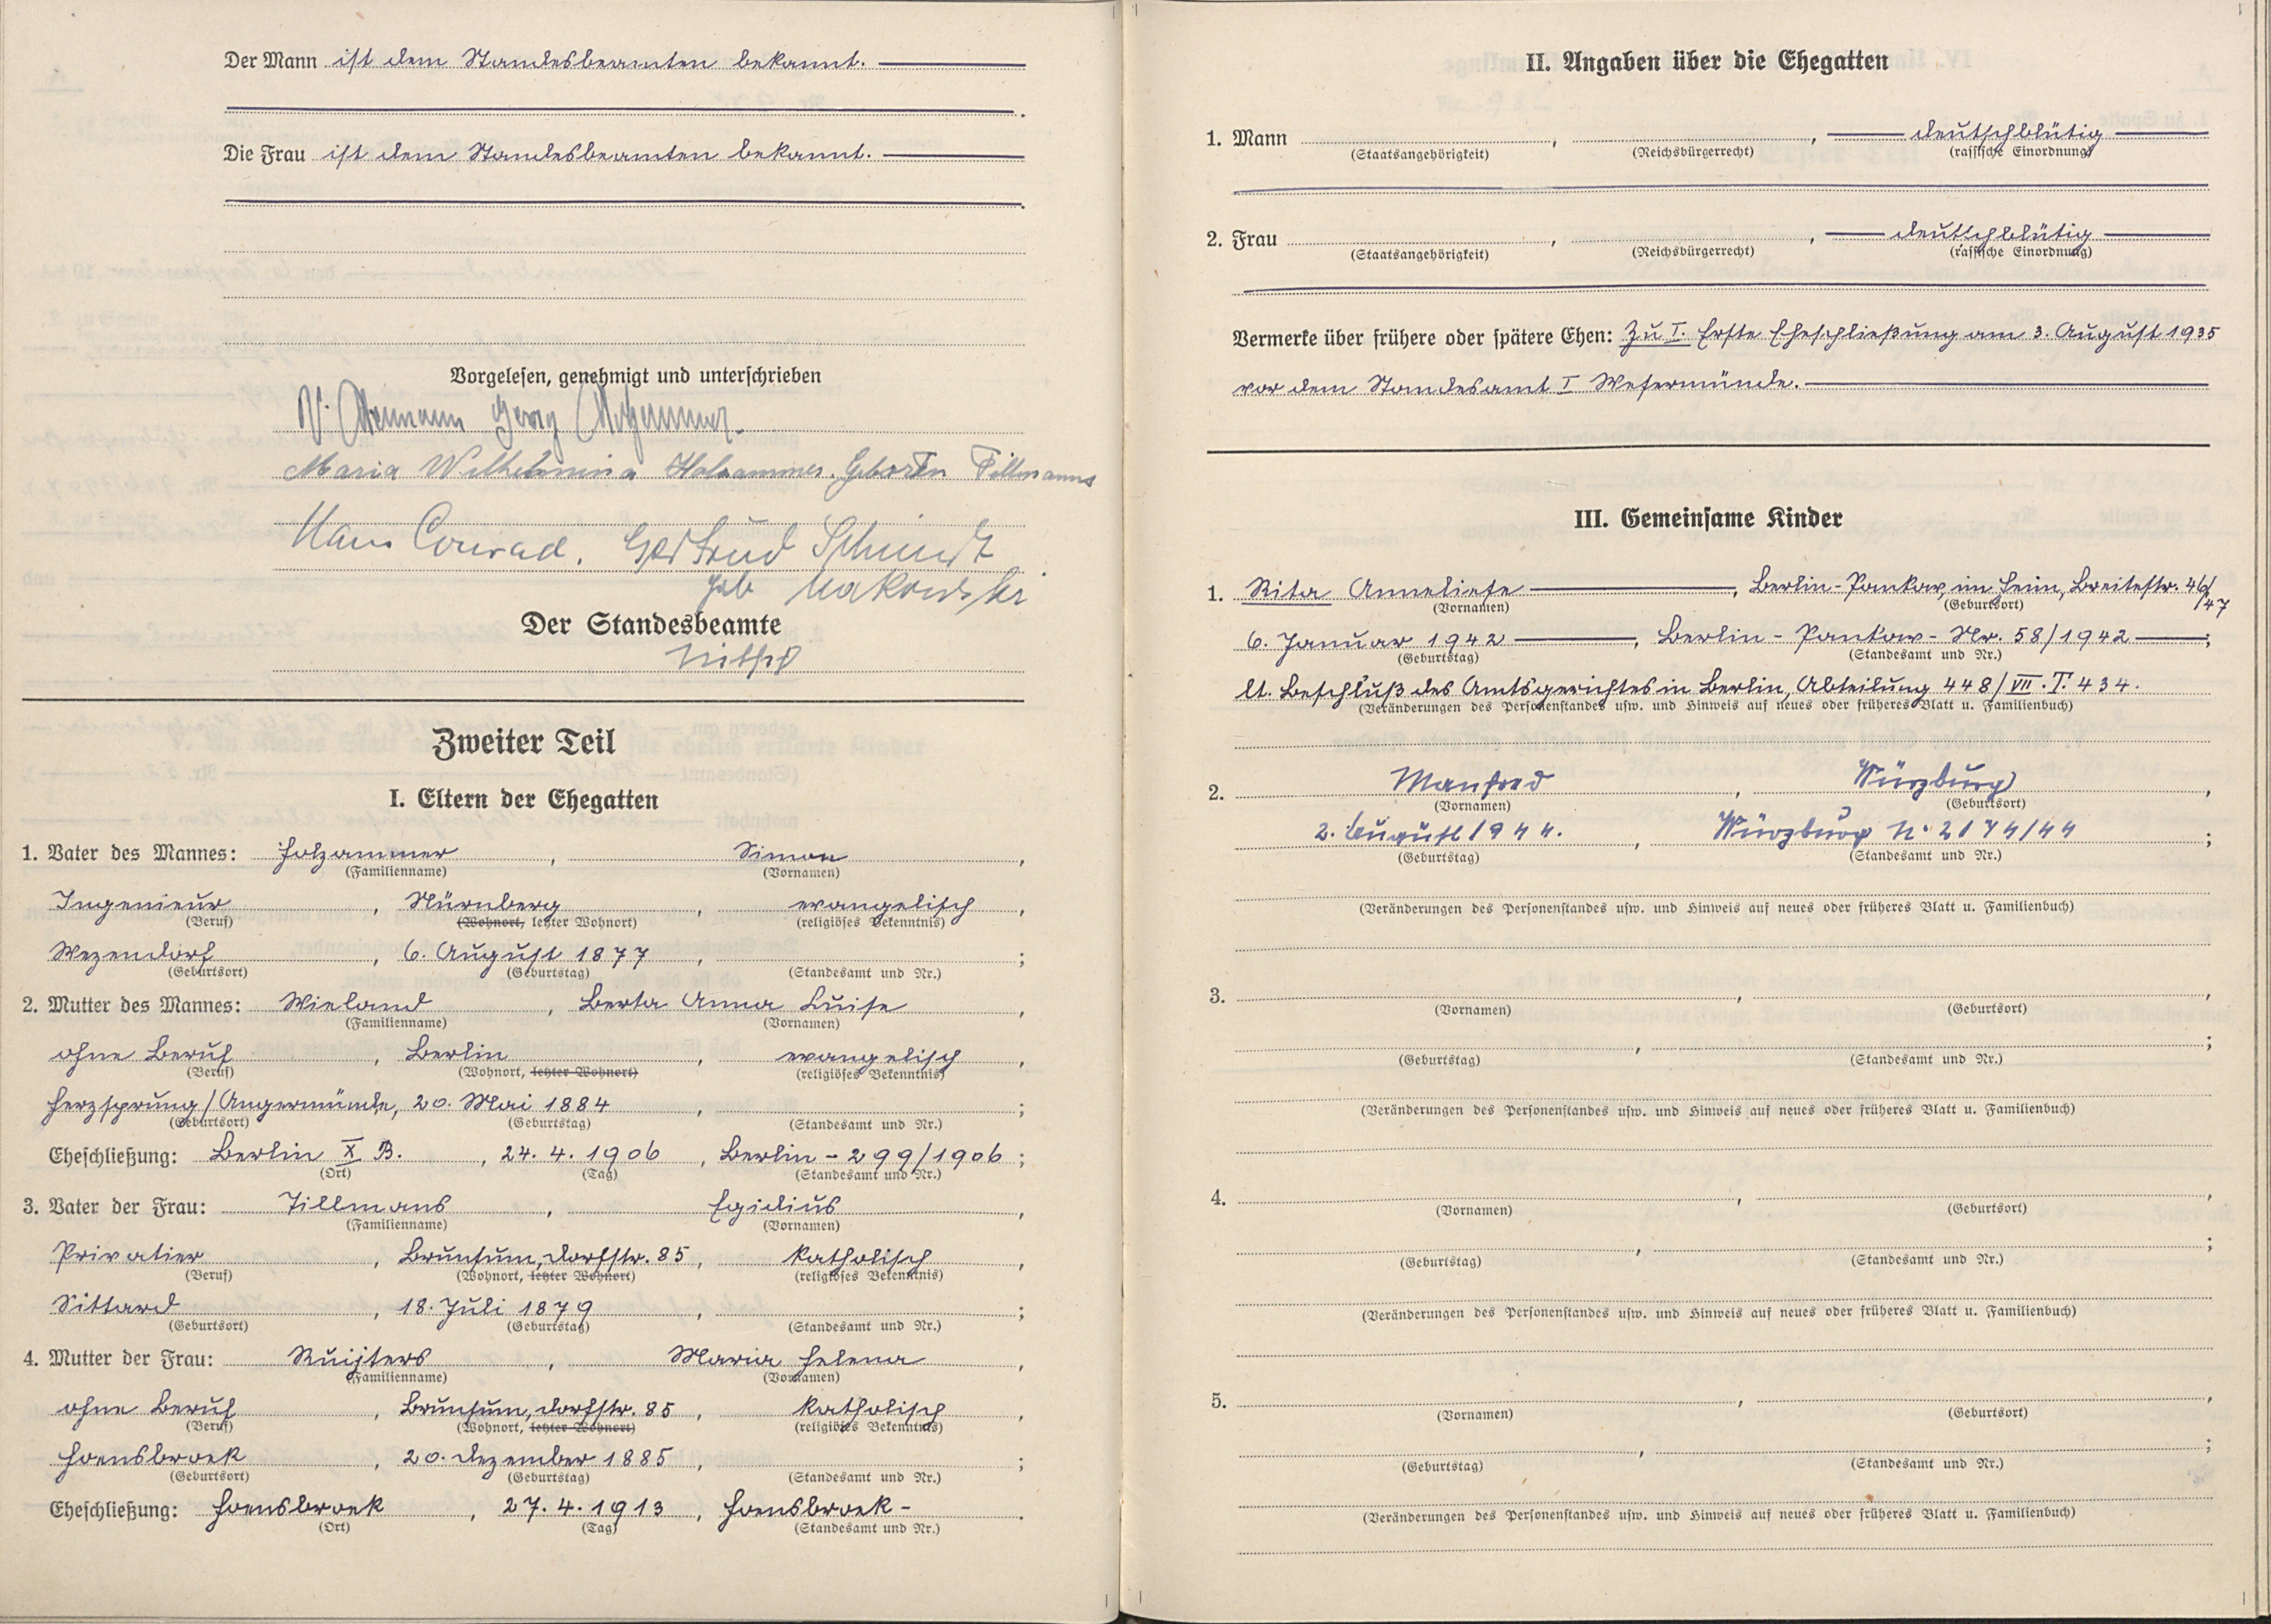 Der Mann ist dem Standesbeamten bekannt.
Die Frau ist dem Standesbeamten bekannt.
Vorgelesen, genehmigt und unterschrieben
Georg Holzammer.
Maria Wilhelmina Holzammer. Geboren Tillmanns
Hans Conrad. Gertrud Schmidt
geb Makowski
Der Standesbeamte
Zweiter Teil
I. Eltern der Ehegatten
1. Vater des Mannes: Holzammer, Simon,
(Familienname) (Vornamen)
Ingenieur, Nürnberg, evangelisch,
(Beruf) (Wohnort, letzter Wohnort) (religiöses Bekenntnis)
Wezendorf, 6. August 1877,
(Geburtsort) (Geburtstag) (Standesamt und Nr.) ;
2. Mutter des Mannes: Wieland, Berta Anna Luise,
(Familienname) (Vornamen)
ohne Beruf, Berlin, evangelisch,
(Beruf) (Wohnort, letzter Wohnort) (religiöses Bekenntnis)
Herzsprung/Angermünde, 20. Mai 1884, ;
(Geburtsort) (Geburtstag) (Standesamt und Nr.)
Eheschließung: Berlin X B., 24. 4. 1906, Berlin - 299/1906;
(Ort) (Tag) (Standesamt und Nr.)
3. Vater der Frau: Tillmans, Egidius,
(Familienname) (Vornamen)
Privatier, Brunsum, Dorfstr. 85, katholisch,
(Beruf) (Wohnort, letzter Wohnort) (religiöses Bekenntnis)
Sittard, 18. Juli 1879, ;
(Geburtsort) (Geburtstag) (Standesamt und Nr.)
4. Mutter der Frau: Ruijters, Maria Helena,
(Familienname) (Vornamen)
ohne Beruf, Brunsum, Dorfstr. 85, katholisch,
(Beruf) (Wohnort, letzter Wohnort) (religiöses Bekenntnis)
Hoensbroek, 20. Dezember 1885, ;
(Geburtsort) (Geburtstag) (Standesamt und Nr.)
Eheschließung: Hoensbroek, 27. 4. 1913, Hoensbroek - .
(Ort) (Tag) (Standesamt und Nr.)
II. Angaben über die Ehegatten
1. Mann , , deutschblütig
(Staatsangehörigkeit) (Reichsbürgerrecht) (rassische Einordnung)
2. Frau , , deutschblütig
(Staatsangehörigkeit) (Reichsbürgerrecht) (rassische Einordnung)
Vermerke über frühere oder spätere Ehen: Zu I. Erste Eheschließung am 3. August 1935
vor dem Standesamt I Wesermünde.
III. Gemeinsame Kinder
1. Rita Anneliese, Berlin-Pankow, im Heim, Breitestr. 46/47
(Vornamen) (Geburtsort)
6. Januar 1942, Berlin - Pankow - Nr. 58/1942;
(Geburtstag) (Standesamt und Nr.)
lt. Beschluß des Amtsgerichtes in Berlin, Abteilung 448/VII. T. 434.
(Veränderungen des Personenstandes usw. und Hinweis auf neues oder früheres Blatt u. Familienbuch)
2. Manfred, Würzburg,
(Vornamen) (Geburtsort)
2. August 1944., Würzburg Nr 2174/44;
(Geburtstag) (Standesamt und Nr.)
(Veränderungen des Personenstandes usw. und Hinweis auf neues oder früheres Blatt u. Familienbuch)
3. , ,
(Vornamen) (Geburtsort)
, ;
(Geburtstag) (Standesamt und Nr.)
(Veränderungen des Personenstandes usw. und Hinweis auf neues oder früheres Blatt u. Familienbuch)
4. , ,
(Vornamen) (Geburtsort)
, ;
(Geburtstag) (Standesamt und Nr.)
(Veränderungen des Personenstandes usw. und Hinweis auf neues oder früheres Blatt u. Familienbuch)
5. , ,
(Vornamen) (Geburtsort)
, ;
(Geburtstag) (Standesamt und Nr.)
(Veränderungen des Personenstandes usw. und Hinweis auf neues oder früheres Blatt u. Familienbuch)